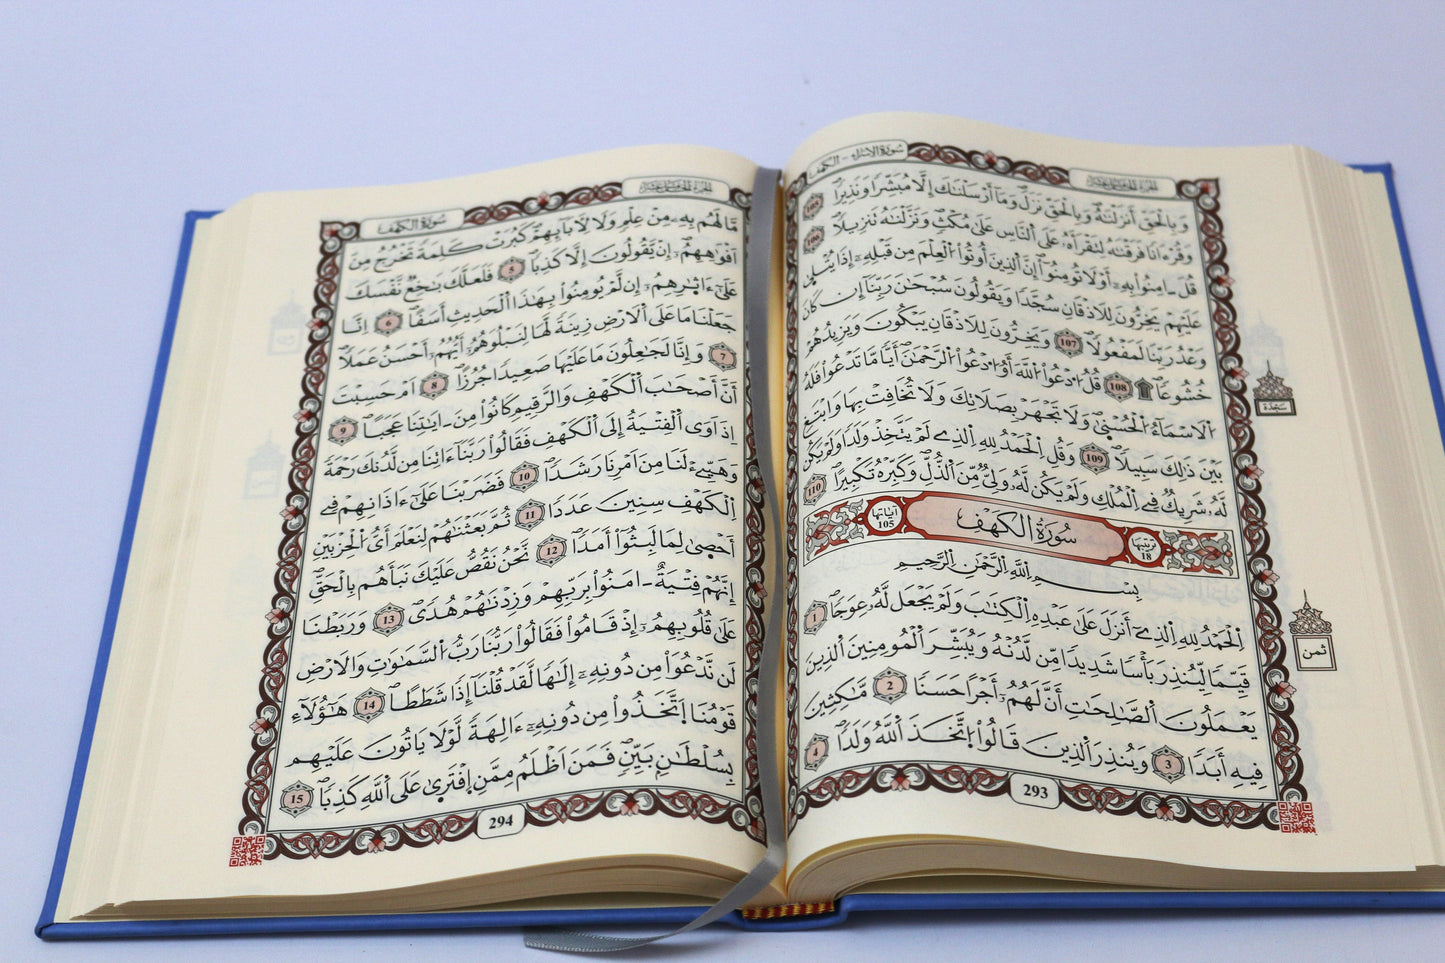 سُورَةُ الإِسْرَاءِ - الكَهْفِ
الجزء الخامس عشر
وَبِالْحَقِّ أَنزَلْنَٰهُ وَبِالْحَقِّ نَزَلَ وَمَا أَرْسَلْنَٰكَ إِلَّا مُبَشِّرًا وَنَذِيرًا 105
وَقُرْءَانًا فَرَقْنَٰهُ لِتَقْرَأَهُۥ عَلَى النَّاسِ عَلَىٰ مُكْثٍ وَنَزَّلْنَٰهُ تَنزِيلًا 106
قُلَ اٰمِنُوا بِهِۦٓ أَوْ لَا تُومِنُوا إِنَّ الَّذِينَ أُوتُوا الْعِلْمَ مِن قَبْلِهِۦٓ إِذَا يُتْلَىٰ
عَلَيْهِمْ يَخِرُّونَ لِلَاذْقَانِ سُجَّدًا وَيَقُولُونَ سُبْحَٰنَ رَبِّنَا إِن كَانَ
وَعْدُ رَبِّنَا لَمَفْعُولًا 107 وَيَخِرُّونَ لِلَاذْقَانِ يَبْكُونَ وَيَزِيدُهُمْ
خُشُوعًا 108 قُلُ ادْعُوا اللَّهَ أَوُ ادْعُوا الرَّحْمَٰنَ أَيًّا مَّا تَدْعُوا فَلَهُ
الَاسْمَاءُ الْحُسْنَىٰ وَلَا تَجْهَرْ بِصَلَاتِكَ وَلَا تُخَافِتْ بِهَا وَابْتَغِ
بَيْنَ ذَٰلِكَ سَبِيلًا 109 وَقُلِ الْحَمْدُ لِلهِ الَّذِي لَمْ يَتَّخِذْ وَلَدًا وَلَمْ يَكُن
لَّهُۥ شَرِيكٌ فِي الْمُلْكِ وَلَمْ يَكُن لَّهُۥ وَلِيٌّ مِّنَ الذُّلِّ وَكَبِّرْهُ تَكْبِيرًا 110
ترتيبها 18 سُورَةُ الكَهْفِ آياتها 105
بِسْمِ اللَّهِ الرَّحْمَٰنِ الرَّحِيمِ
الْحَمْدُ لِلهِ الَّذِي أَنزَلَ عَلَىٰ عَبْدِهِ الْكِتَٰبَ وَلَمْ يَجْعَل لَّهُۥ عِوَجًا 1
قَيِّمًا لِّيُنذِرَ بَأْسًا شَدِيدًا مِّن لَّدُنْهُ وَيُبَشِّرَ الْمُومِنِينَ الَّذِينَ
يَعْمَلُونَ الصَّٰلِحَٰتِ أَنَّ لَهُمُۥٓ أَجْرًا حَسَنًا 2 مَّٰكِثِينَ
فِيهِ أَبَدًا 3 وَيُنذِرَ الَّذِينَ قَالُوا اتَّخَذَ اللَّهُ وَلَدًا 4
سَجْدَة
ثُمن
293
الجزء الخامس عشر
سُورَةُ الكَهْفِ
مَّا لَهُم بِهِۦ مِنْ عِلْمٍ وَلَا لِأٓبَآئِهِمْ كَبُرَتْ كَلِمَةً تَخْرُجُ مِنَ
اَفْوَٰهِهِمُۥٓ إِنْ يَّقُولُونَ إِلَّا كَذِبًا 5 فَلَعَلَّكَ بَٰخِعٌ نَّفْسَكَ
عَلَىٰٓ ءَاثَٰرِهِمُۥٓ إِن لَّمْ يُومِنُوا بِهَٰذَا الْحَدِيثِ أَسَفًا 6 اِنَّا
جَعَلْنَا مَا عَلَى الَارْضِ زِينَةً لَّهَا لِنَبْلُوَهُمُۥٓ أَيُّهُمُۥٓ أَحْسَنُ عَمَلًا
7 وَإِنَّا لَجَٰعِلُونَ مَا عَلَيْهَا صَعِيدًا جُرُزًا 8 اَمْ حَسِبْتَ
أَنَّ أَصْحَٰبَ الْكَهْفِ وَالرَّقِيمِ كَانُوا مِنَ اٰيَٰتِنَا عَجَبًا 9
اِذَ اَوَى الْفِتْيَةُ إِلَى الْكَهْفِ فَقَالُوا رَبَّنَا ءَاتِنَا مِن لَّدُنكَ رَحْمَةً
وَهَيِّئْ لَنَا مِنَ اَمْرِنَا رَشَدًا 10 فَضَرَبْنَا عَلَىٰٓ ءَاذَانِهِمْ فِي
الْكَهْفِ سِنِينَ عَدَدًا 11 ثُمَّ بَعَثْنَٰهُمْ لِنَعْلَمَ أَيُّ الْحِزْبَيْنِ
أَحْصَىٰ لِمَا لَبِثُوا أَمَدًا 12 نَّحْنُ نَقُصُّ عَلَيْكَ نَبَأَهُم بِالْحَقِّ
إِنَّهُمْ فِتْيَةٌ اٰمَنُوا بِرَبِّهِمْ وَزِدْنَٰهُمْ هُدًى 13 وَرَبَطْنَا
عَلَىٰ قُلُوبِهِمُۥٓ إِذْ قَامُوا فَقَالُوا رَبُّنَا رَبُّ السَّمَٰوَٰتِ وَالَارْضِ
لَن نَّدْعُوَا مِن دُونِهِۦٓ إِلَٰهًا لَّقَد قُلْنَا إِذًا شَطَطًا 14 هَٰٓؤُلَآءِ
قَوْمُنَا اتَّخَذُوا مِن دُونِهِۦٓ ءَالِهَةً لَّوْلَا يَاتُونَ عَلَيْهِم
بِسُلْطَٰنٍ بَيِّنٍ فَمَنَ اَظْلَمُ مِمَّنِ افْتَرَىٰ عَلَى اللَّهِ كَذِبًا 15
294